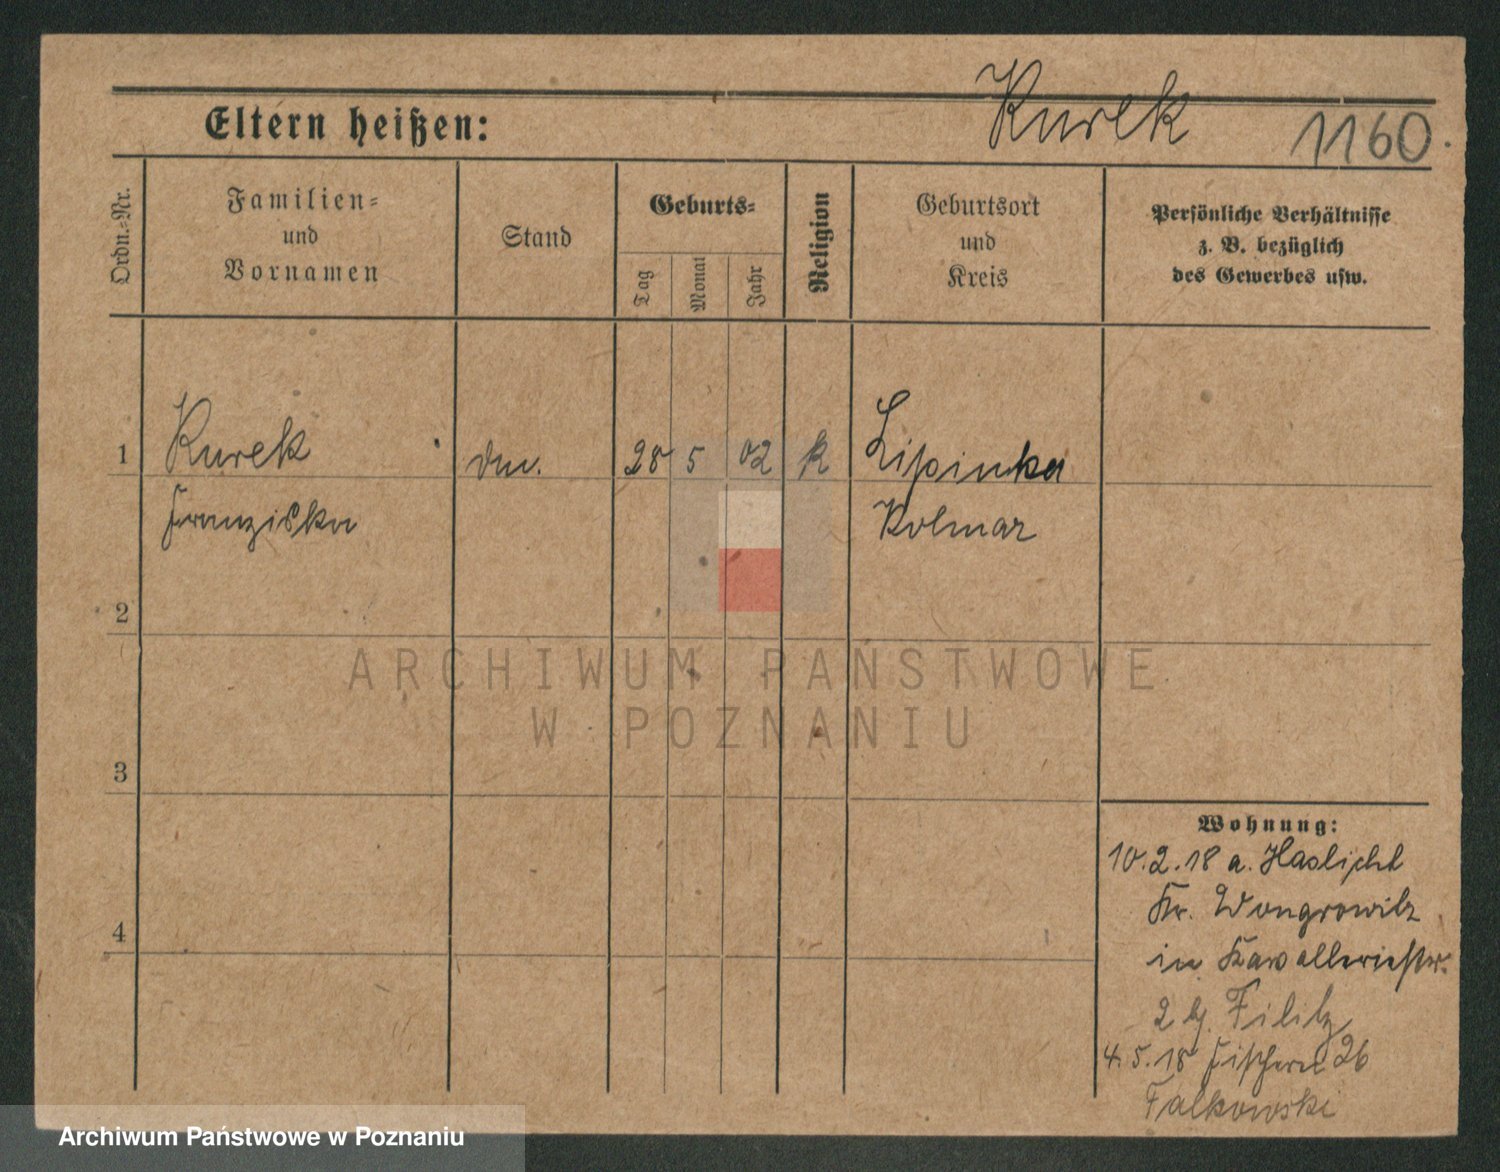 Kurek
1160.
Eltern heißen:
Ordn.-Nr.
Familien-
und
Vornamen
Stand
Geburts-
Tag
Monat
Jahr
Religion
Geburtsort
und
Kreis
Persönliche Verhältnisse
z. B. bezüglich
des Gewerbes usw.
1 Kurek 28 5 02 k Lipinka
Franziska Kolmar
2
ARCHIWUM PAŃSTWOWE
W POZNANIU
3
Wohnung:
10.2.18 a. Haslicht
Kr. Wongrowitz
in Kavalleriestr.
2 b/. Filitz
4.5.18 Fischerei 26
Falkowski
4
Archiwum Państwowe w Poznaniu